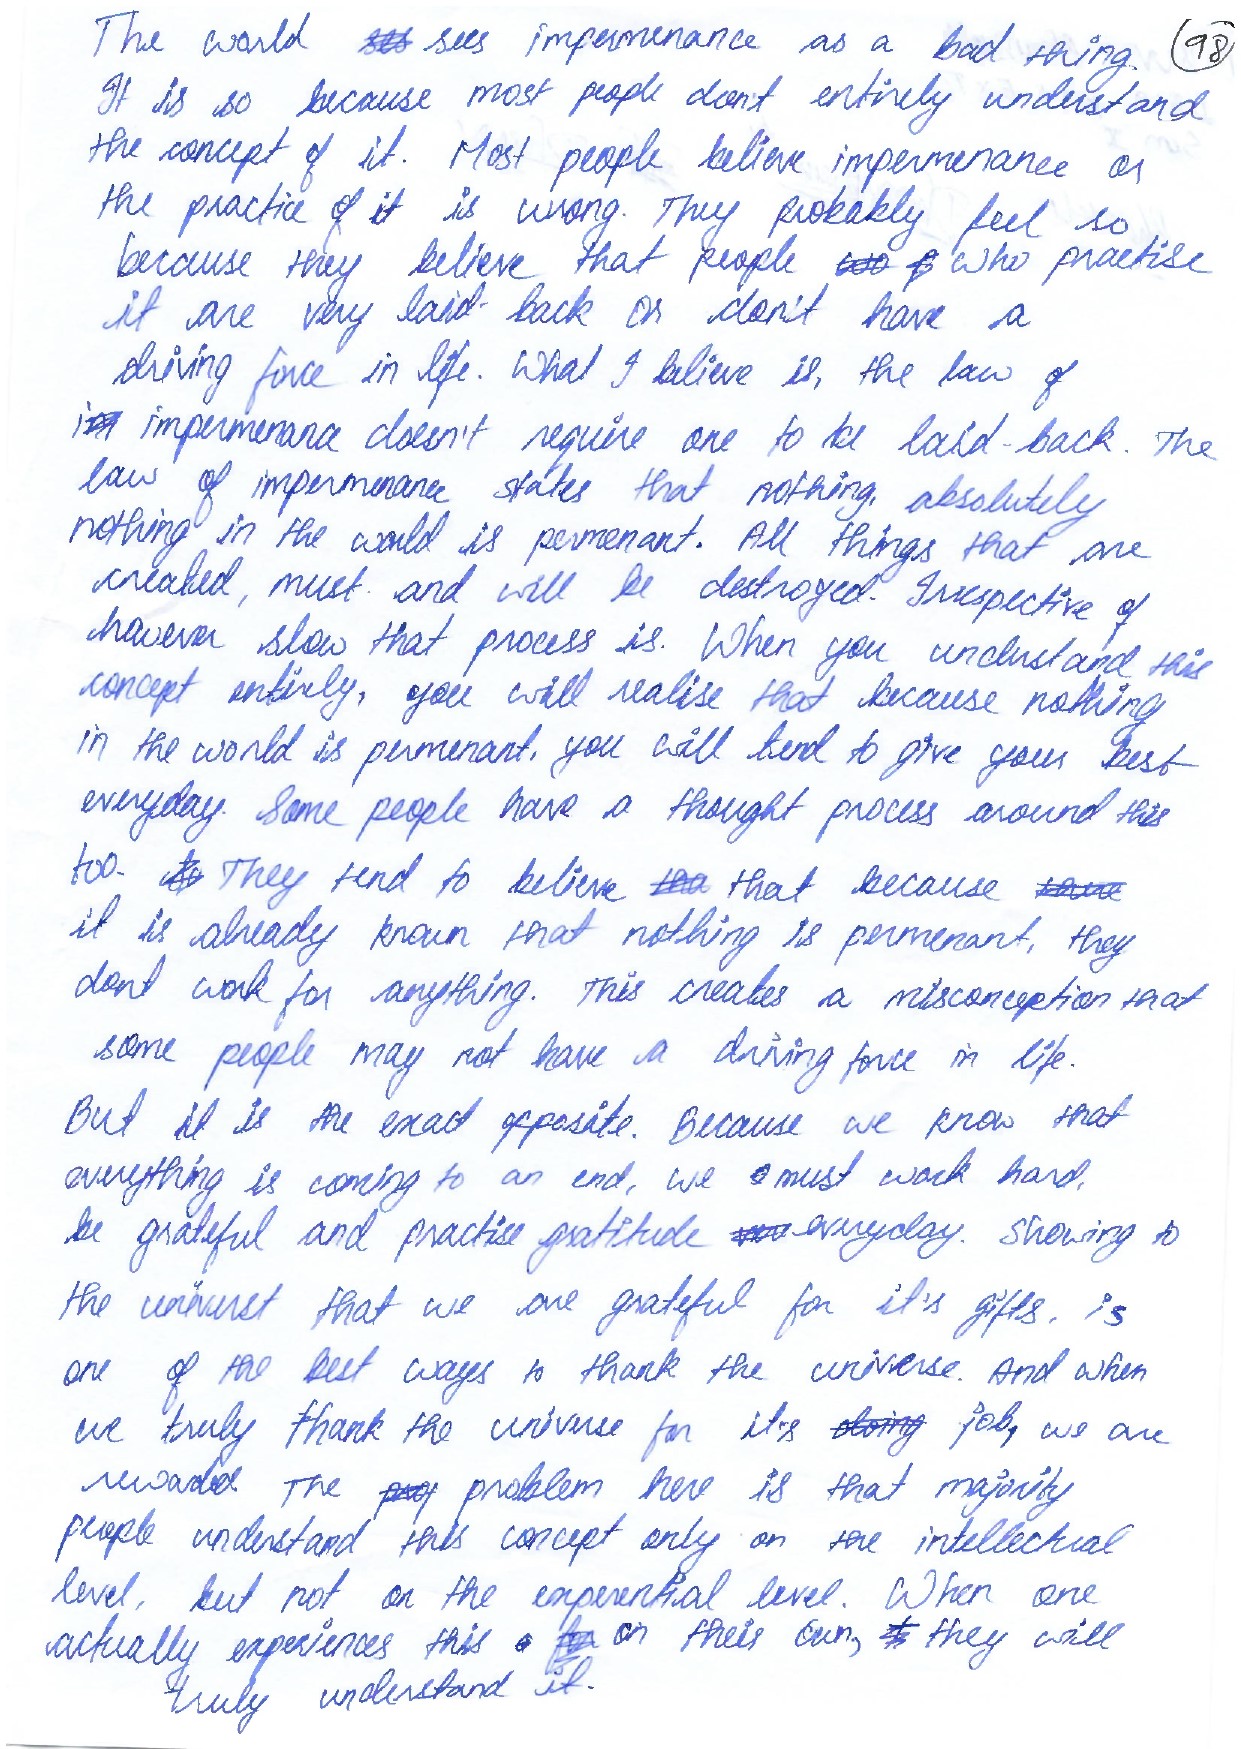 The world sees impermenance as a bad thing. 98
It is so because most people don't entirely understand
the concept of it. Most people believe impermenance or
the practice of it is wrong. They probably feel so
because they believe that people who practise
it are very laid-back or don't have a
driving force in life. What I believe is, the law of
impermenance doesn't require one to be laid-back. The
law of impermenance states that nothing, absolutely
nothing in the world is permenant. All things that are
created, must and will be destroyed. Irrespective of
however slow that process is. When you understand this
concept entirely, you will realise that because nothing
in the world is permenant, you will tend to give your best
everyday. Some people have a thought process around this
too. They tend to believe that because
it is already known that nothing is permenant, they
dont work for anything. This creates a misconception that
some people may not have a driving force in life.
But it is the exact opposite. Because we know that
everything is coming to an end, we must work hard,
be grateful and practise gratitude everyday. Showing to
the universe that we are grateful for it's gifts, is
one of the best ways to thank the universe. And when
we truly thank the universe for it's job, we are
rewarded. The problem here is that majority
people understand this concept only on the intellectual
level, but not on the experential level. When one
actually experiences this on their own, they will
truly understand it.